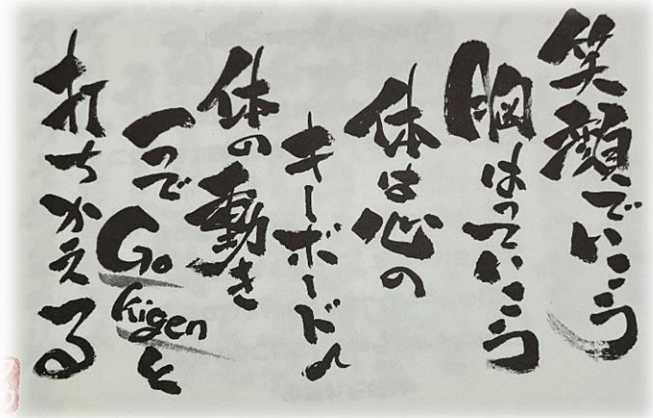 笑顔でいこう
胸はっていこう
体は心の
キーボード
体の動き
一つで
Go
kigenと
打ちかえる